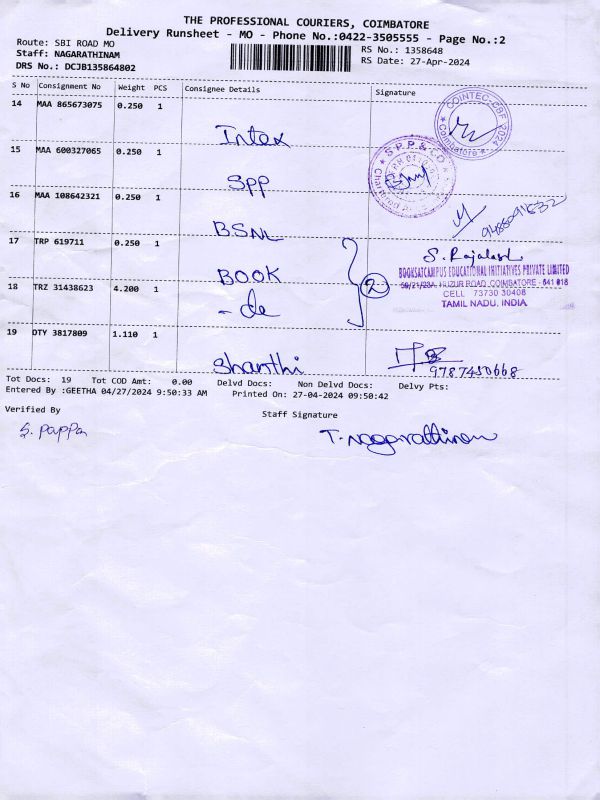 THE PROFESSIONAL COURIERS, COIMBATORE
Delivery Runsheet - MO - Phone No.:0422-3505555 - Page No.:2
Route: SBI ROAD MO
RS No.: 1358648
Staff: NAGARATHINAM
RS Date: 27-Apr-2024
DRS No.: DCJB135864802
S No Consignment No Weight PCS Consignee Details Signature
14 MAA 865673075 0.250 1
Intex
COINTEC-CBF 2024
Coimbatore
15 MAA 600327065 0.250 1
SPP
S.P.P & CO
16 MAA 108642321 0.250 1
BSNL
17 TRP 619711 0.250 1
BOOK
S. Rajalash
BOOKSATCAMPUS EDUCATIONAL INITIATIVES PRIVATE LIMITED
HUZUR ROAD, COIMBATORE - 641 018
CELL 73730 30408
TAMIL NADU, INDIA
18 TRZ 31438623 4.200 1
- de
2
19 DTY 3817809 1.110 1
Shanthi
9787450668
Tot Docs: 19 Tot COD Amt: 0.00 Delvd Docs: Non Delvd Docs: Delvy Pts:
Entered By :GEETHA 04/27/2024 9:50:33 AM Printed On: 27-04-2024 09:50:42
Verified By
Staff Signature
S. Pappa
T. Nagarathinam